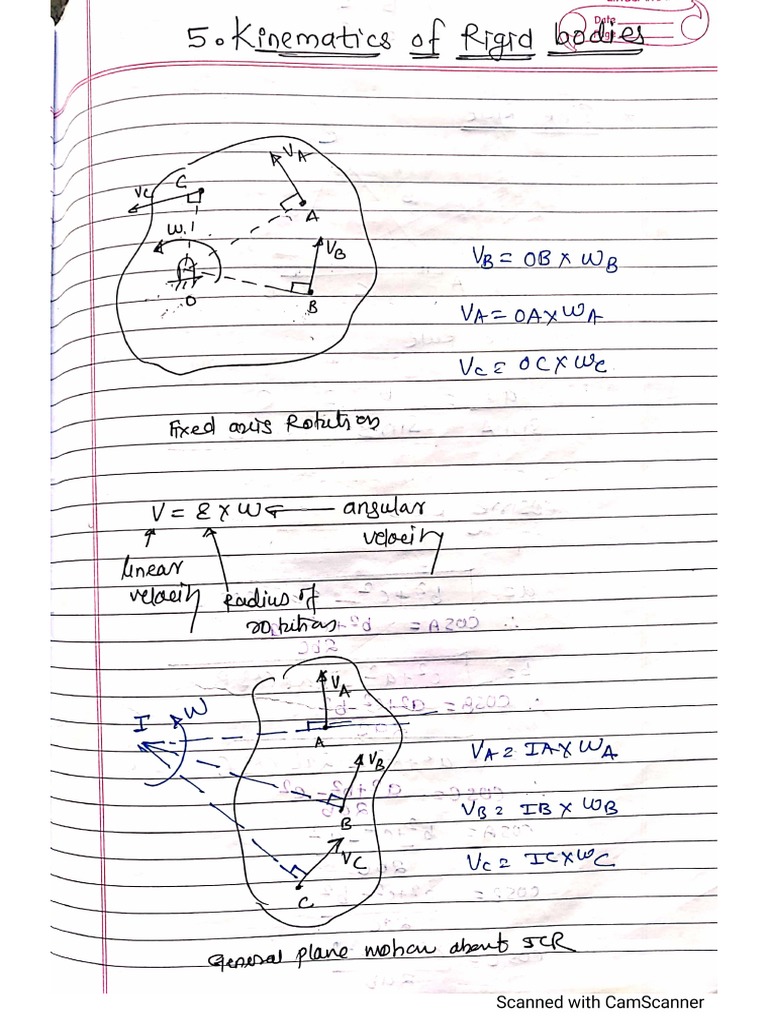 Date
5. Kinematics of Rigid bodies
VA
C
VC
A
W
VB
O
B
VB = OB × ωB
VA = OA × ωA
VC = OC × ωC
Fixed axis Rotation
V = r × ω — angular
velocity
linear
velocity
Radius of
rotation
VA
I
W
A
VB
B
VC
C
VA = IA × ωA
VB = IB × ωB
VC = IC × ωC
General plane motion about ICR
Scanned with CamScanner